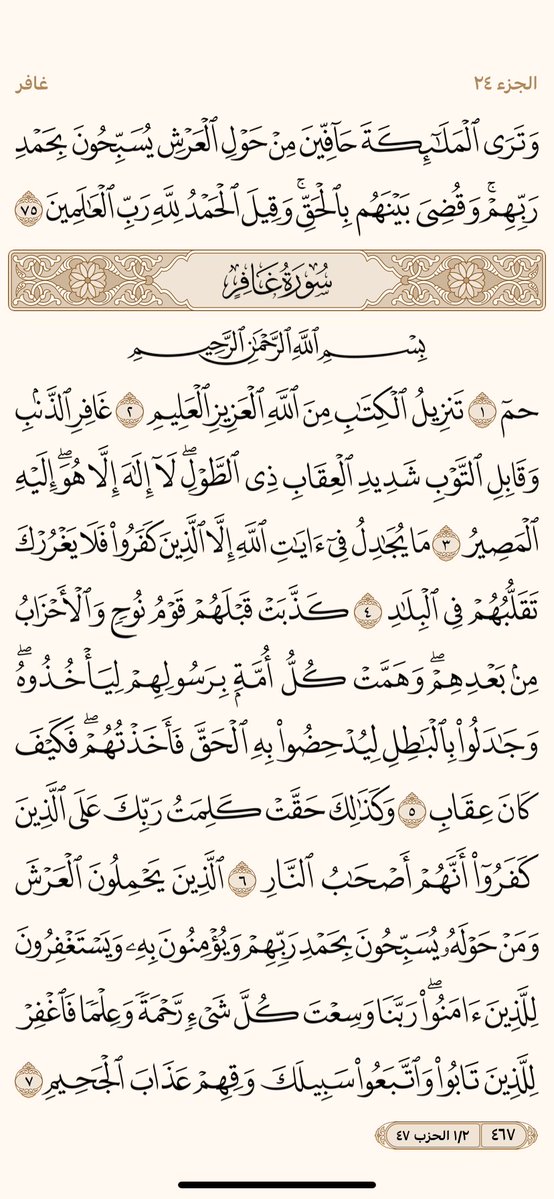 الجزء ٢٤
غافر
وَتَرَى ٱلْمَلَٰٓئِكَةَ حَآفِّينَ مِنْ حَوْلِ ٱلْعَرْشِ يُسَبِّحُونَ بِحَمْدِ
رَبِّهِمْۚ وَقُضِىَ بَيْنَهُم بِٱلْحَقِّۚ وَقِيلَ ٱلْحَمْدُ لِلَّهِ رَبِّ ٱلْعَٰلَمِينَ ٧٥
سُورَةُ غَافِرٍ
بِسْمِ ٱللَّهِ ٱلرَّحْمَٰنِ ٱلرَّحِيمِ
حمٓ ١ تَنزِيلُ ٱلْكِتَٰبِ مِنَ ٱللَّهِ ٱلْعَزِيزِ ٱلْعَلِيمِ ٢ غَافِرِ ٱلذَّنۢبِ
وَقَابِلِ ٱلتَّوْبِ شَدِيدِ ٱلْعِقَابِ ذِى ٱلطَّوْلِۖ لَآ إِلَٰهَ إِلَّا هُوَۖ إِلَيْهِ
ٱلْمَصِيرُ ٣ مَا يُجَٰدِلُ فِىٓ ءَايَٰتِ ٱللَّهِ إِلَّا ٱلَّذِينَ كَفَرُوا۟ فَلَا يَغْرُرْكَ
تَقَلُّبُهُمْ فِى ٱلْبِلَٰدِ ٤ كَذَّبَتْ قَبْلَهُمْ قَوْمُ نُوحٍ وَٱلْأَحْزَابُ
مِنۢ بَعْدِهِمْۖ وَهَمَّتْ كُلُّ أُمَّةٍۭ بِرَسُولِهِمْ لِيَأْخُذُوهُۖ
وَجَٰدَلُوا۟ بِٱلْبَٰطِلِ لِيُدْحِضُوا۟ بِهِ ٱلْحَقَّ فَأَخَذْتُهُمْۖ فَكَيْفَ
كَانَ عِقَابِ ٥ وَكَذَٰلِكَ حَقَّتْ كَلِمَتُ رَبِّكَ عَلَى ٱلَّذِينَ
كَفَرُوٓا۟ أَنَّهُمْ أَصْحَٰبُ ٱلنَّارِ ٦ ٱلَّذِينَ يَحْمِلُونَ ٱلْعَرْشَ
وَمَنْ حَوْلَهُۥ يُسَبِّحُونَ بِحَمْدِ رَبِّهِمْ وَيُؤْمِنُونَ بِهِۦ وَيَسْتَغْفِرُونَ
لِلَّذِينَ ءَامَنُوا۟ۖ رَبَّنَا وَسِعْتَ كُلَّ شَىْءٍ رَّحْمَةً وَعِلْمًا فَٱغْفِرْ
لِلَّذِينَ تَابُوا۟ وَٱتَّبَعُوا۟ سَبِيلَكَ وَقِهِمْ عَذَابَ ٱلْجَحِيمِ ٧
٤٦٧ ١/٢ الحزب ٤٧